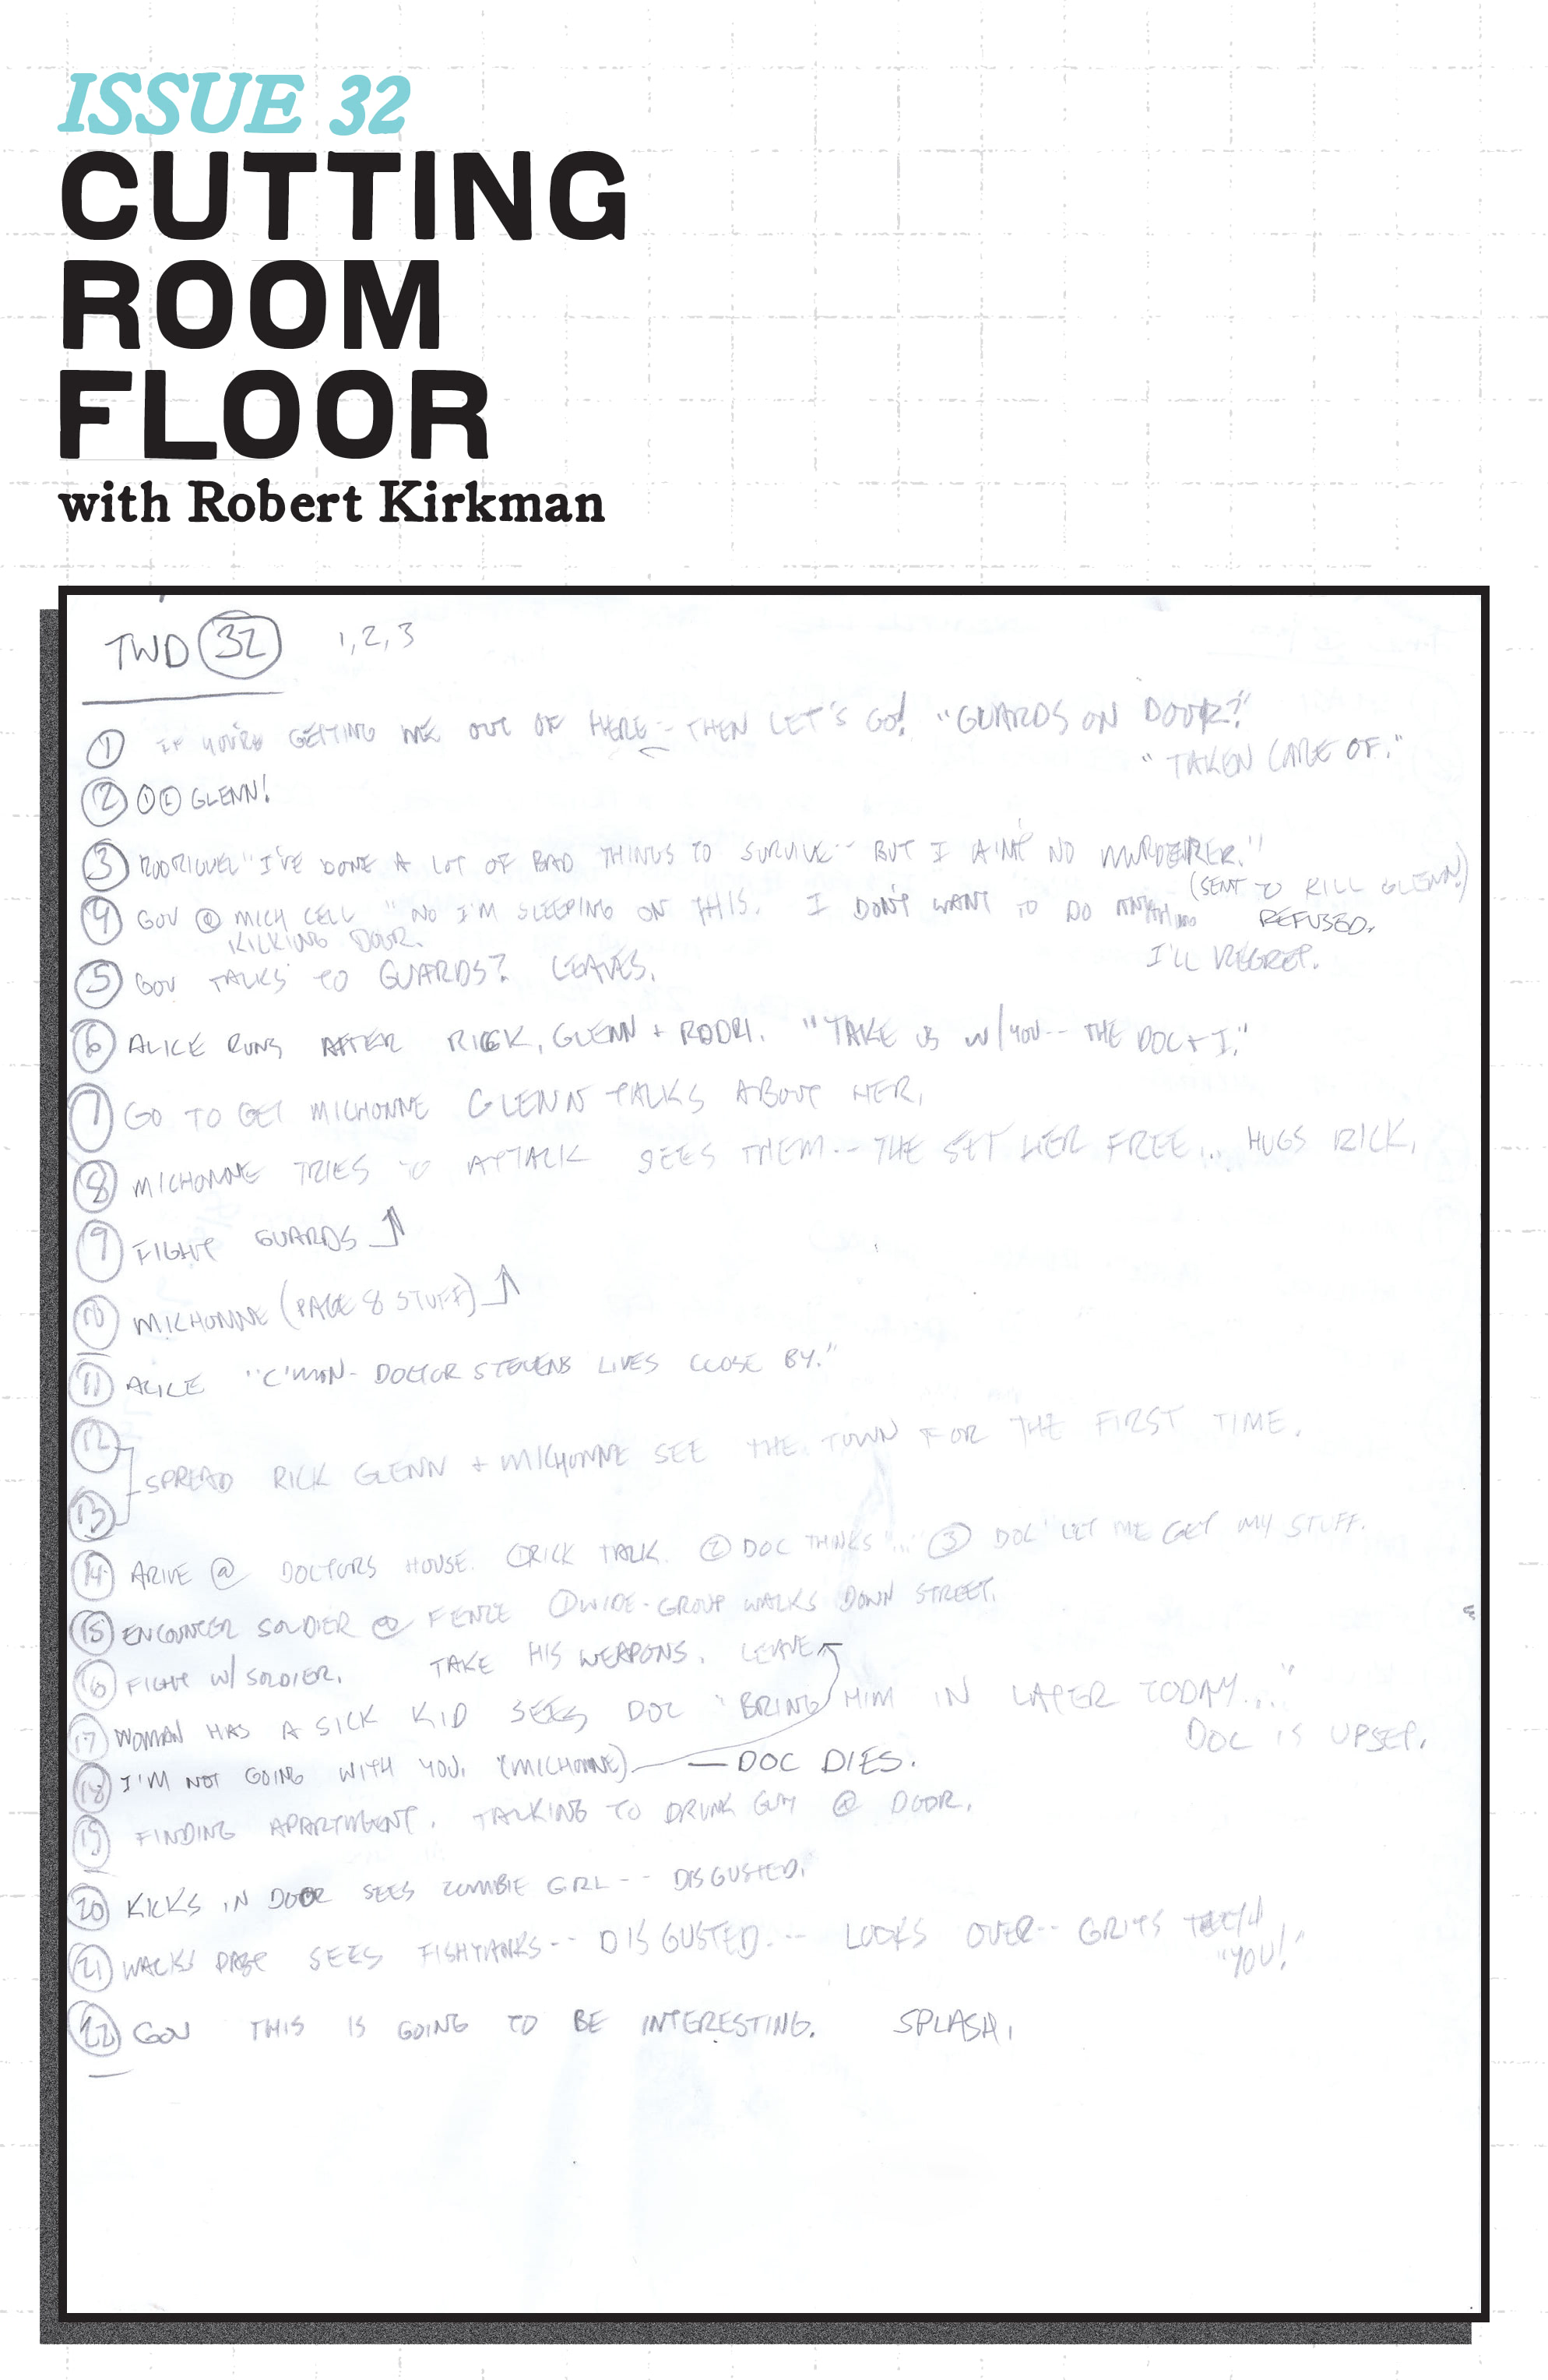 ISSUE 32
CUTTING
ROOM
FLOOR
with Robert Kirkman
TWD 32 1, 2, 3
1 IF YOU'RE GETTING ME OUT OF HERE -- THEN LET'S GO! "GUARDS ON DOOR?"
"TAKEN CARE OF."
2 GLENN!
3 "I'VE DONE A LOT OF BAD THINGS TO SURVIVE -- BUT I AIN'T NO MURDERER."
(SENT TO KILL GLENN!)
REFUSED.
4 GOV @ MICH CELL "NO I'M SLEEPING ON THIS. I DON'T WANT TO DO
I'LL REGRET.
DOOR.
5 GOV TALKS TO GUARDS? LEAVES.
6 ALICE RUNS AFTER RICK, GLENN + RODRI. "TAKE US W/YOU -- THE DOC + I."
7 GO TO GET MICHONNE GLENN TALKS ABOUT HER.
8 MICHONNE TRIES TO ATTACK SEES THEM -- THE SET HER FREE... HUGS RICK.
9 FIGHT GUARDS
10 MICHONNE (PAGE 8 STUFF)
11 ALICE "C'MON - DOCTOR STEVENS LIVES CLOSE BY."
12
13
SPREAD RICK GLENN + MICHONNE SEE THE TOWN FOR THE FIRST TIME.
14 ARIVE @ DOCTORS HOUSE. 1 RICK TALK. 2 DOC THINKS "..." 3 DOC "LET ME GET MY STUFF.
15 ENCOUNTER SOLDIER @ FENCE 1 WIDE - GROUP WALKS DOWN STREET.
16 FIGHT W/ SOLDIER. TAKE HIS WEAPONS. LEAVE
17 WOMAN HAS A SICK KID SEES DOC "BRING HIM IN LATER TODAY..."
DOC IS UPSET.
18 I'M NOT GOING WITH YOU. (MICHONNE) — DOC DIES.
19 FINDING APARTMENT. TALKING TO DRUNK GUY @ DOOR.
20 KICKS IN DOOR SEES ZOMBIE GIRL -- DISGUSTED.
21 WALKS PAST SEES FISHTANKS -- DISGUSTED -- LOOKS OVER -- GRITS TEETH
"YOU!"
22 GOV THIS IS GOING TO BE INTERESTING. SPLASH.